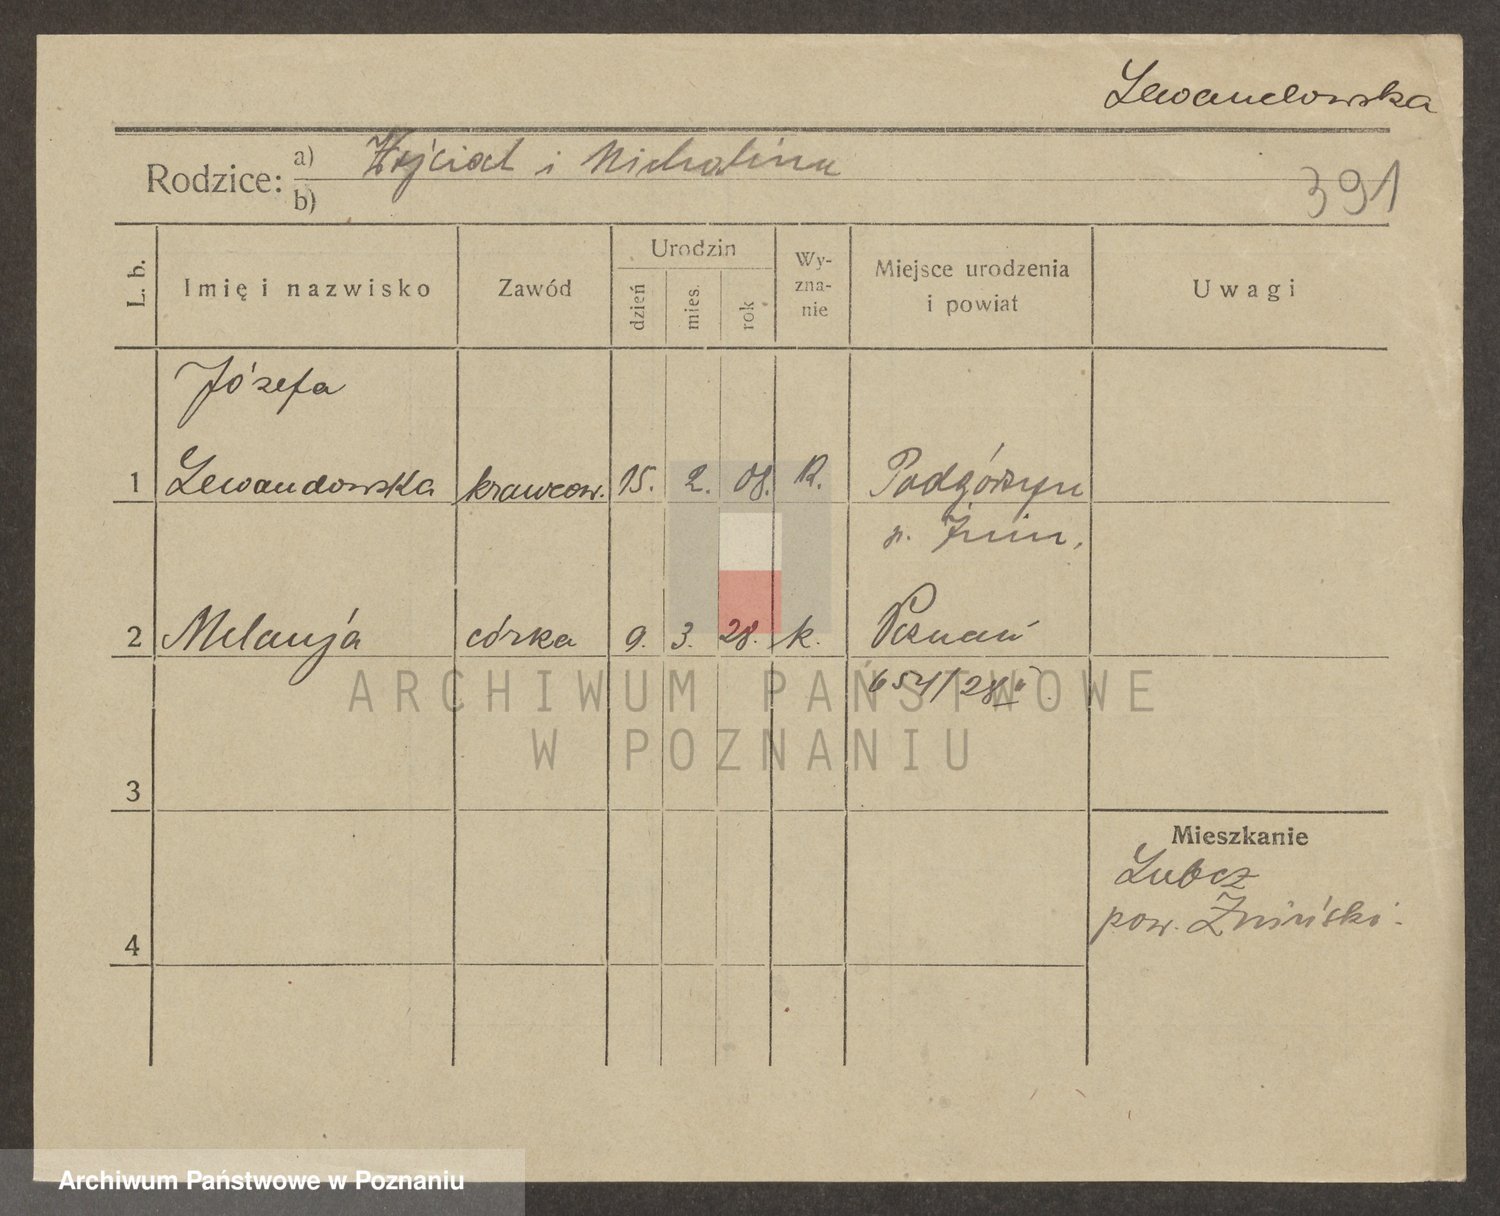 Lewandowska
Rodzice: a) Wojciech i Michalina
b)
391
L. b.
Imię i nazwisko
Zawód
Urodzin
dzień
mies.
rok
Wy-
zna-
nie
Miejsce urodzenia
i powiat
Uwagi
Józefa
1 Lewandowska krawcow. 15. 2. 08. R. Podgórzyn
p. Żnin,
2 Melanja córka 9. 3. 28. k. Poznań
654/28
3
Mieszkanie
Lubcz
pow. Żniński.
4
ARCHIWUM PAŃSTWOWE
W POZNANIU
Archiwum Państwowe w Poznaniu